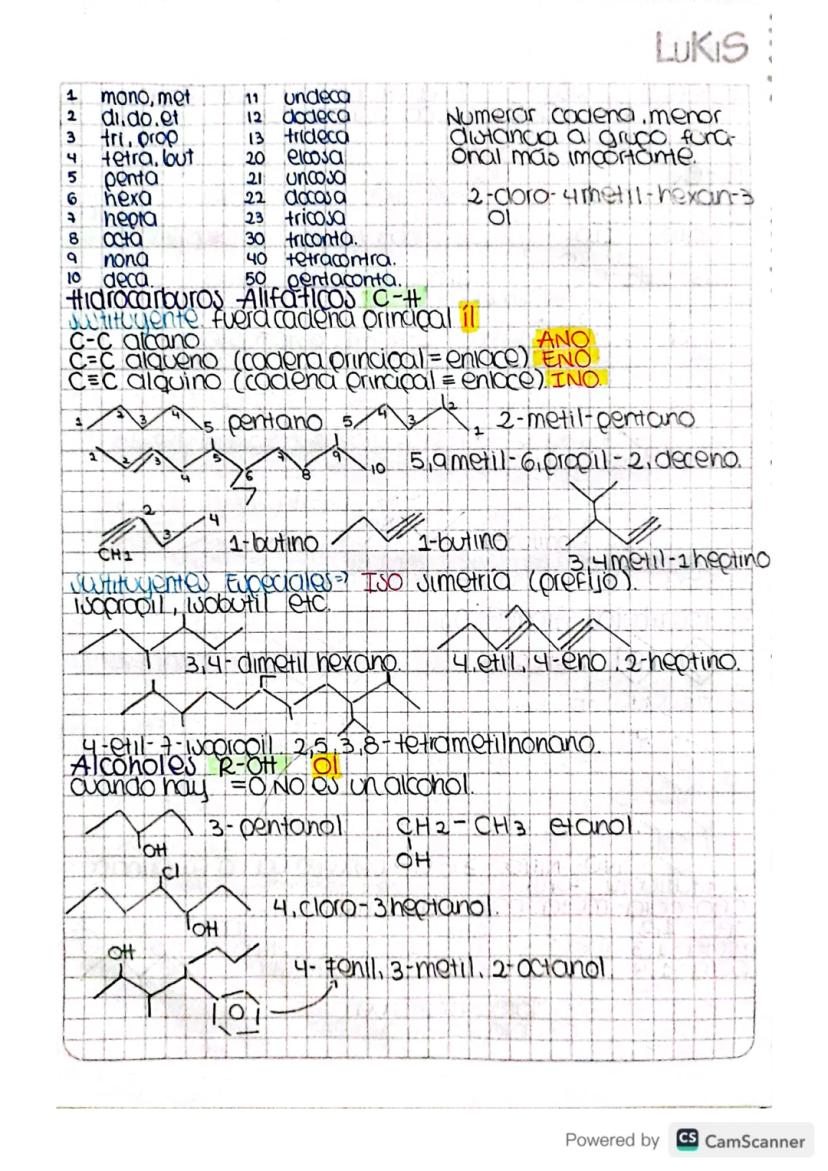 LuKiS
1 mono, met 11 undeca
2 di, do, et 12 dodeca
3 tri, prop 13 trideca
4 tetra, but 20 eicosa
5 penta 21 uncosa
6 hexa 22 docosa
7 hepta 23 tricosa
8 octa 30 triconta.
9 nona 40 tetracontra.
10 deca. 50 pentaconta.
Numerar cadena, menor
distancia a grupo funci-
onal más importante.
2-cloro-4metil-hexan-3
ol
Hidrocarburos Alifáticos C-H
sustituyente fuera cadena principal il
C-C alcano ANO
C=C alqueno (cadena principal = enlace) ENO
C≡C alquino (cadena principal ≡ enlace) INO.
1 2 3 4 5 pentano 5 4 3 2 1 2-metil-pentano
1 2 3 4 5 6 7 8 9 10 5,9metil-6,propil-2,deceno.
CH1 2 3 4 1-butino 1-butino
3,4metil-1heptino
Sustituyentes Especiales=> ISO simetría (prefijo).
isopropil, isobutil etc.
3,4-dimetil hexano. 4,etil, 4-eno, 2-heptino.
4-etil-7-isopropil 2,5,3,8-tetrametilnonano.
Alcoholes R-OH Ol
cuando hay =O NO es un alcohol.
OH 3-pentanol CH2-CH3 etanol
OH
Cl
OH 4,cloro-3heptanol.
OH 4-fenil, 3-metil, 2-octanol
Powered by CS CamScanner